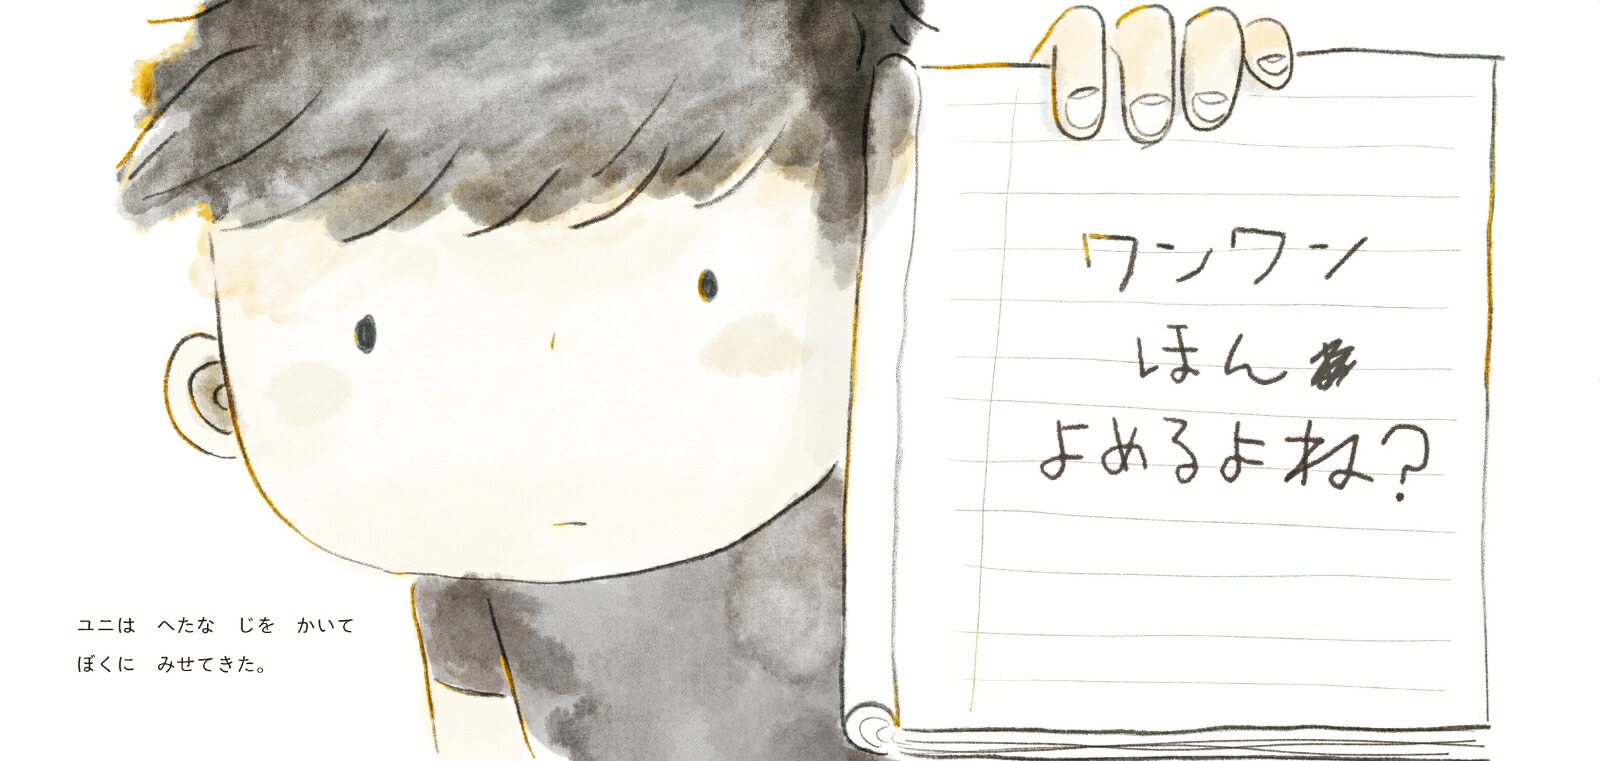 ワンワン
ほん
よめるよね?
ユニは　へたな　じを　かいて
ぼくに　みせてきた。